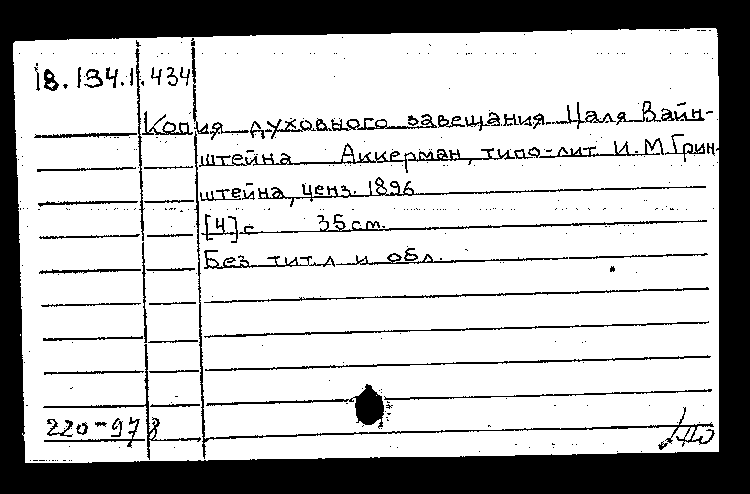 18.134.1.434
Копия духовного завещания Цаля Вайн-
штейна Аккерман, типо-лит. И.М Грин-
штейна, ценз. 1896
[4] с 35 см.
Без тит. л и обл.
220-978